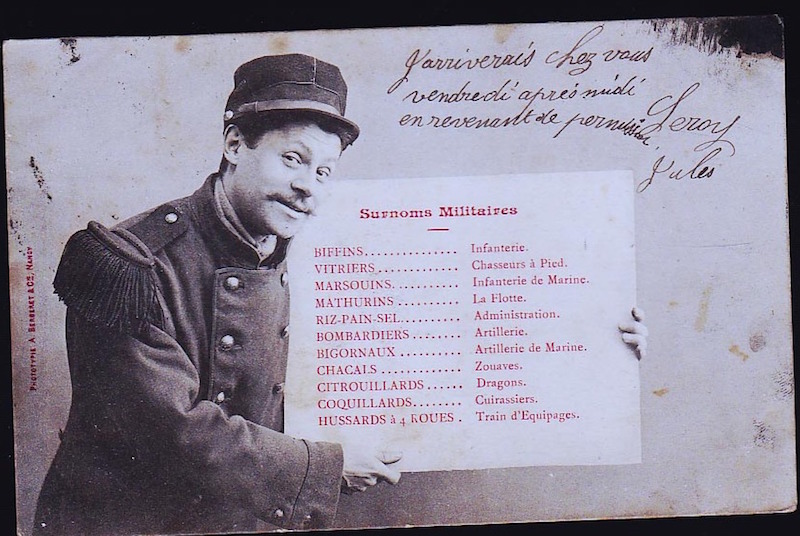 J'arriverais chez vous
vendredi après midi
en revenant de permission
Leroy
Jules
Surnoms Militaires
BIFFINS.............. Infanterie.
VITRIERS............. Chasseurs à Pied.
MARSOUINS.......... Infanterie de Marine.
MATHURINS.......... La Flotte.
RIZ-PAIN-SEL......... Administration.
BOMBARDIERS........ Artillerie.
BIGORNAUX.......... Artillerie de Marine.
CHACALS............. Zouaves.
CITROUILLARDS...... Dragons.
COQUILLARDS........ Cuirassiers.
HUSSARDS à 4 ROUES . Train d'Equipages.
PHOTOTYPIE A. BERGERET & Cie, NANCY